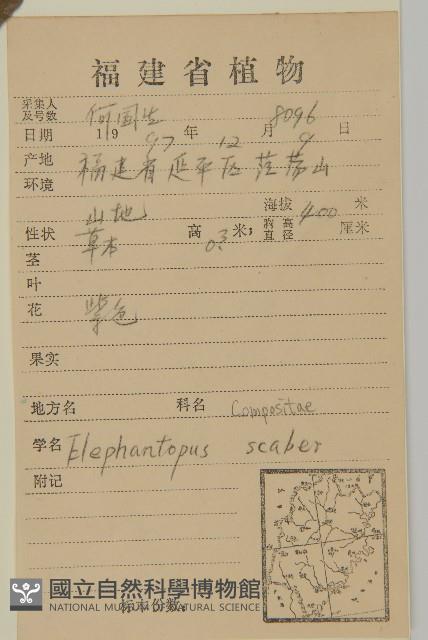 福建省植物
采集人及号数 何国生 8096
日期 1997年12月9日
产地 福建省延平区茫荡山
环境
山地 海拔 400 米
性状 草本 高 0.3 米; 胸高直径 厘米
茎
叶
花 紫色
果实
地方名 科名 Compositae
学名 Elephantopus scaber
附记
標本份数:
國立自然科學博物館
NATIONAL MUSEUM OF NATURAL SCIENCE